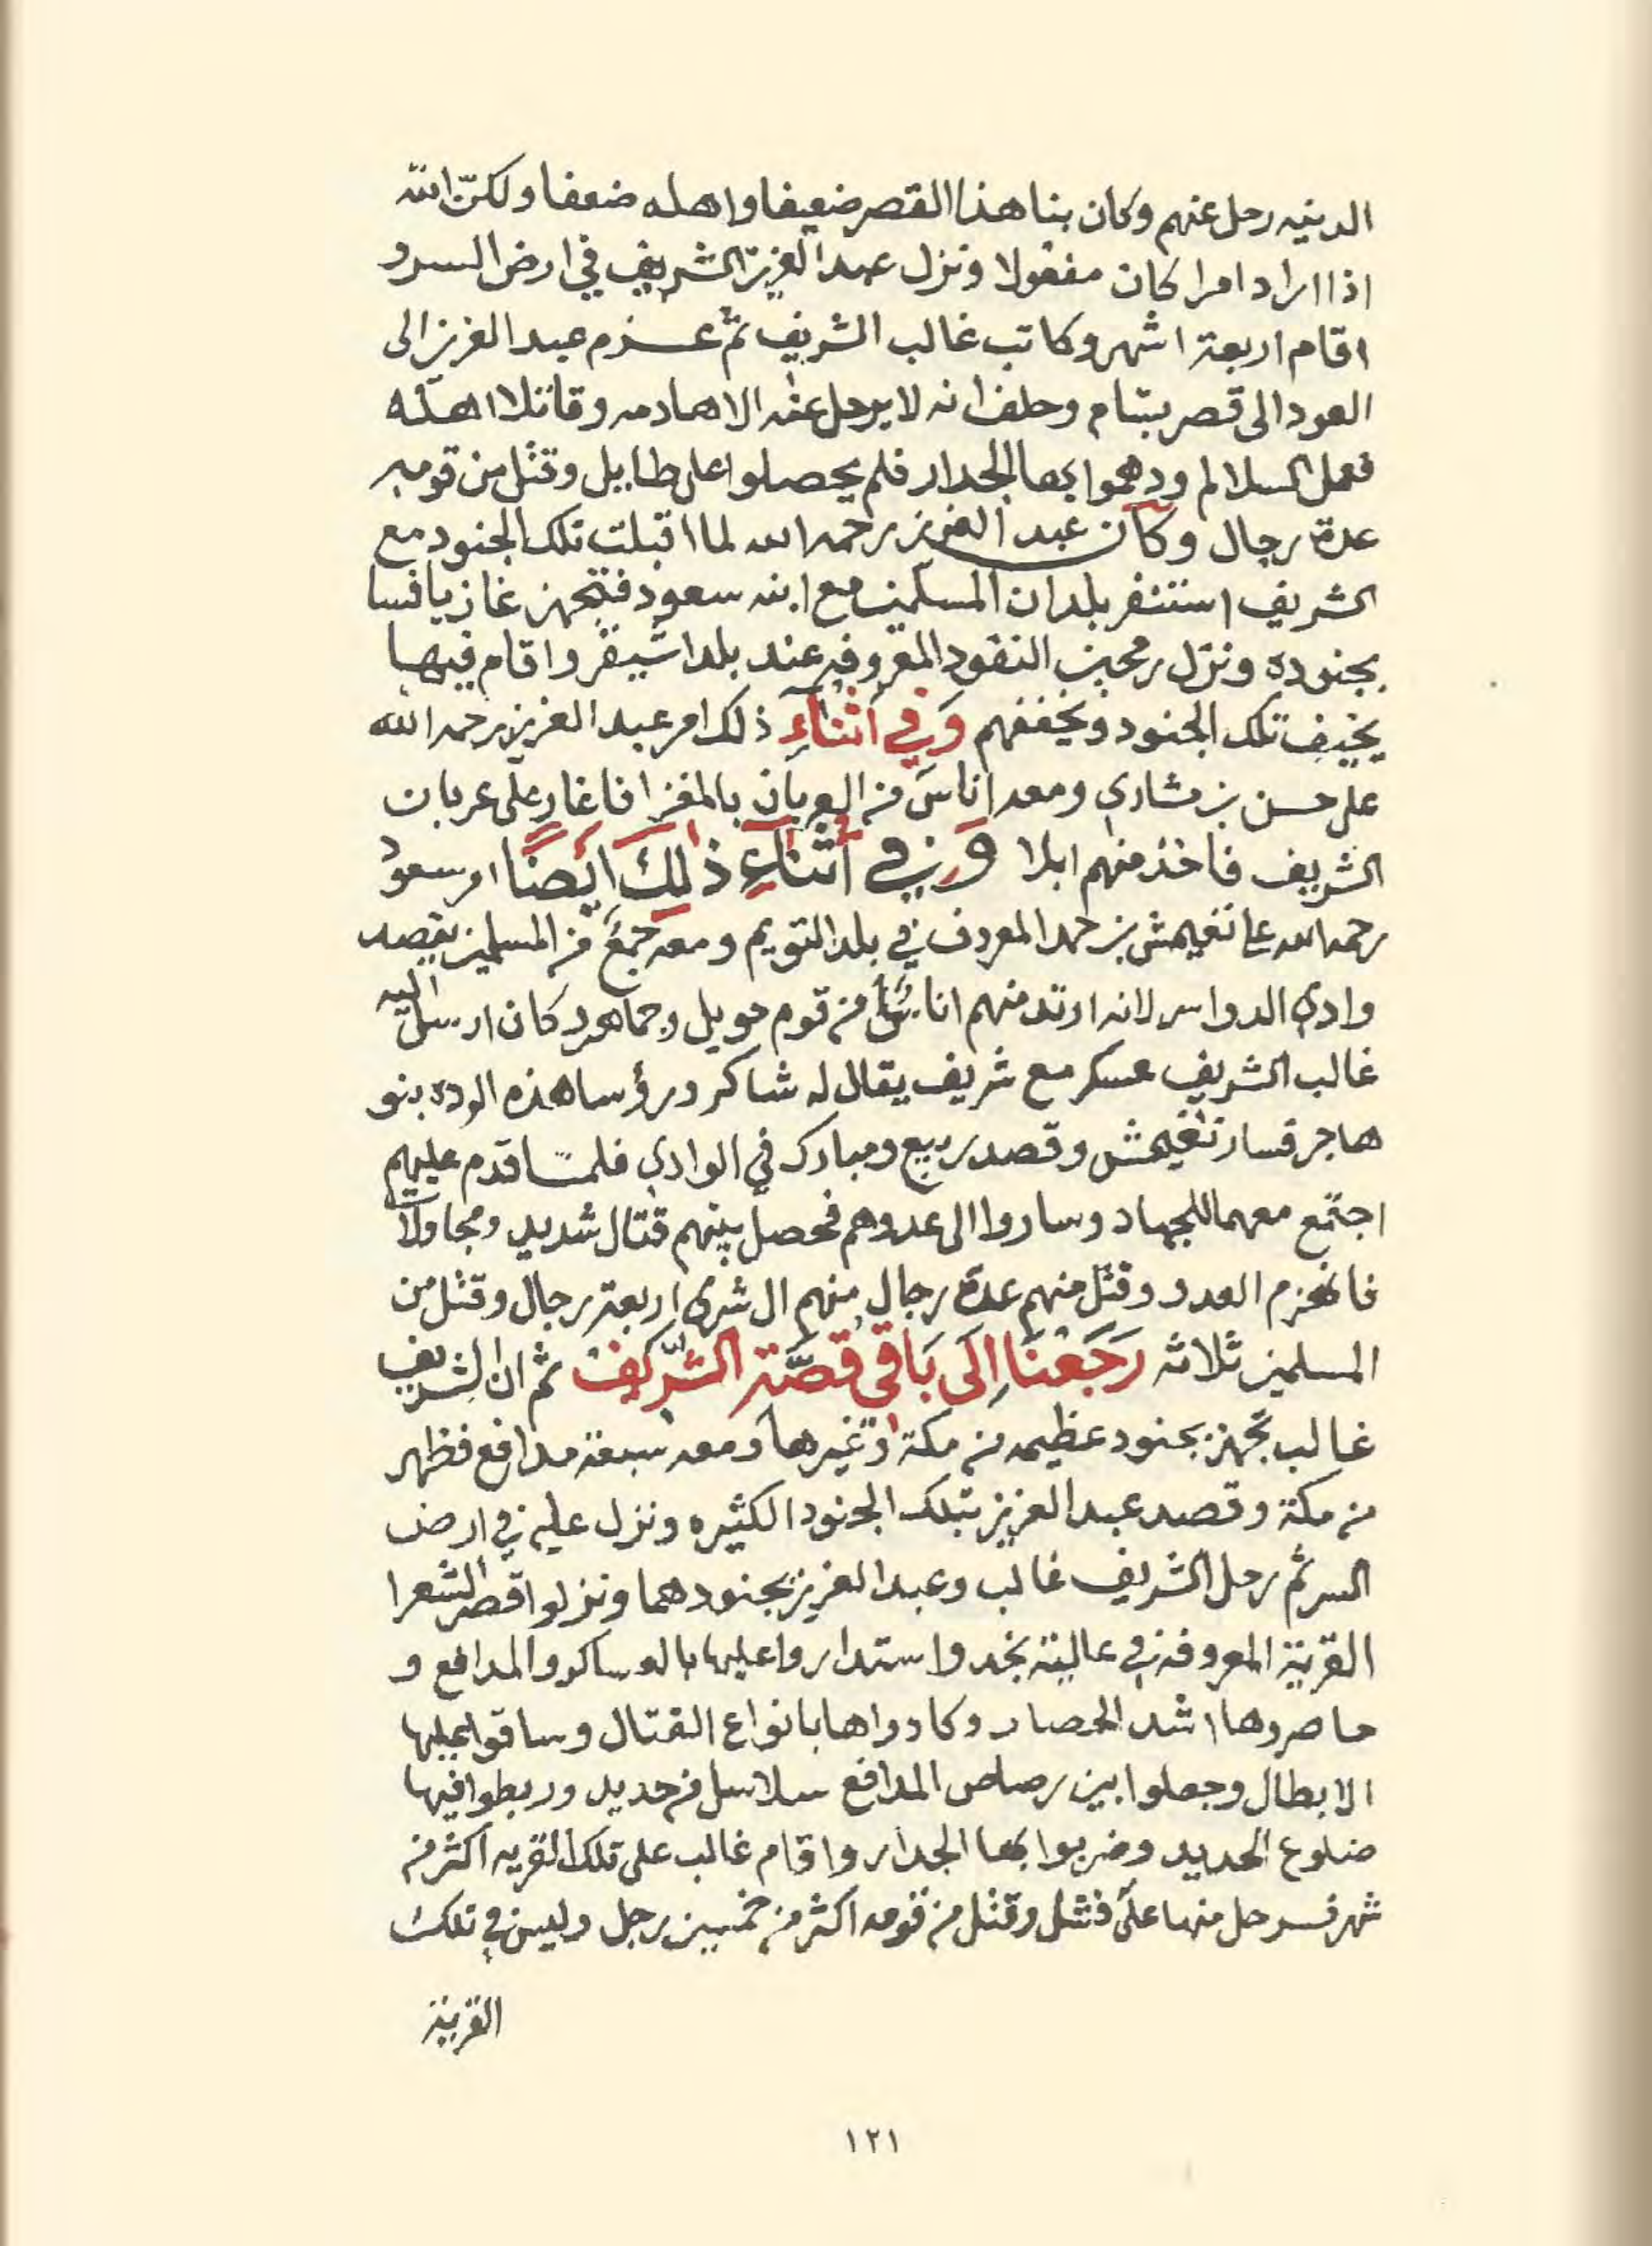 الدنيه رحل عنهم وكان بنا هذا القصر ضعيفا واهله ضعفا ولكنّ الله
اذا اراد امرا كان مفعولا ونزل عبدالعزيز الشريف في ارض السر و
اقام اربعة اشهر وكاتب غالب الشريف ثمّ عزم عبدالعزيز الى
العود الى قصر بسّام وحلف انه لا يرحل عنه الا هادمه وقاتلا اهلّه
فعمل السلالم ودهموا بها الجدار فلم يحصلوا على طايل وقتل من قومه
عدة رجال وكان عبد العزيز رحمه الله لما اقبلت تلك الجنود مع
الشريف استنفر بلدان المسلمين مع ابنه سعود فتجهز غازيا فسا
بجنوده ونزل رمحين النفود المعروفه عند بلد اشيقر واقام فيها
يخيف تلك الجنود ويخففهم وَفي أثناءِ ذلك امر عبدالعزيز رحمه الله
على حسن بن مشاري ومعه اناس من العربان بالمغزا فاغار على عربان
الشريف فاخذ منهم ابلا وَفي أثناءِ ذٰلكَ ايضًا امر سعود
رحمه الله على نغيمش بن حمد المعروف في بلد التويم ومعه جمعَ من المسلمين يقصد
وادي الدواسر لانه ارتد منهم اناسٌ من قوم حويل وجماهر وكان ارسل اليه
غالب الشريف عسكر مع شريف يقال له شاكر ورؤسا هذه الرده بنو
هاجر فسار نغيمش وقصد ربيع ومبارك في الوادي فلمّا قدم عليهم
اجتمع معهما للجهاد وساروا الى عدوهم فحصل بينهم قتال شديد ومجاولات
فانهزم العدو وقتل منهم عدة رجال منهم ال شري اربعة رجال وقتل من
المسلمين ثلاثه رَجَعنَا اِلى بَاقي قصَّة الشّريف ثم ان الشريف
غالب تجهز بجنود عظيمه من مكة وغيرها ومعه سبعة مدافع فظهر
من مكة وقصد عبدالعزيز بتلك الجنود الكثيره ونزل عليه في ارض
السر ثم رحل الشريف غالب وعبدالعزيز بجنودهما ونزلوا قصر الشعرا
القرية المعروفه في عالية نجد واستداروا عليها بالعساكر والمدافع و
حاصروها اشد الحصار وكادواها بانواع القتال وساقوا عليها
الابطال وجعلوا بين رصاص المدافع سلاسل من حديد وربطوا فيها
ضلوع الحديد وضربوا بها الجدار واقام غالب على تلك القريه اكثر من
شهر فرحل منها على فشل وقتل من قومه اكثر من خمسين رجل وليس في تلك
القرية
١٢١